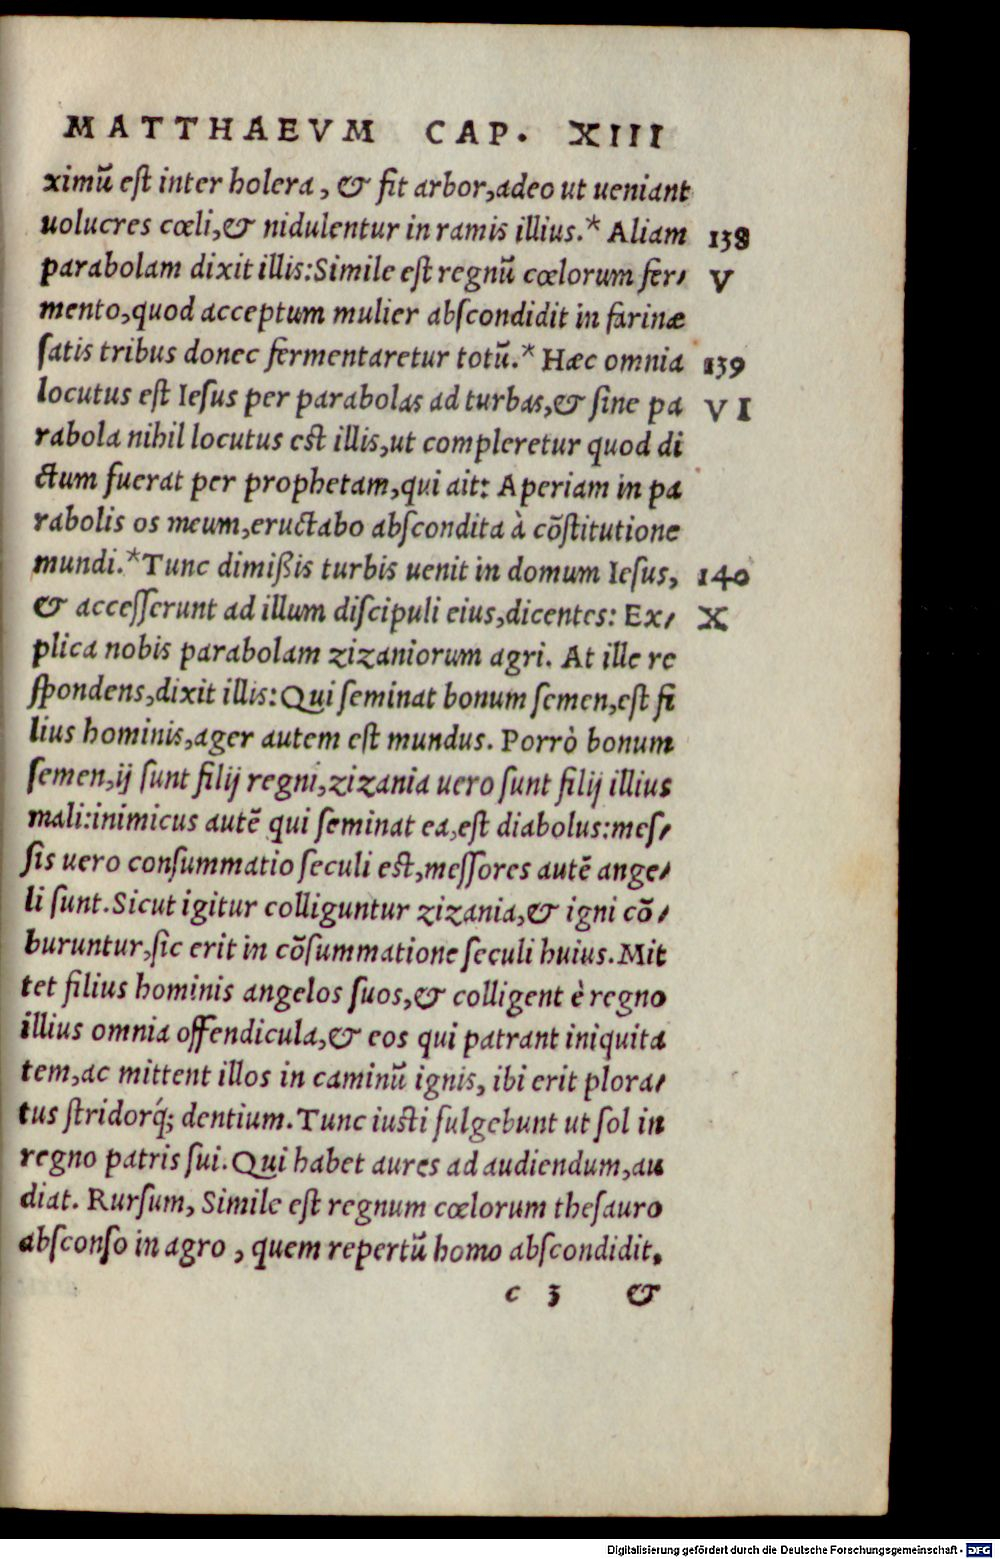 MATTHAEVM CAP. XIII
ximū est inter holera, & fit arbor, adeo ut ueniant
uolucres cœli, & nidulentur in ramis illius.* Aliam 138
parabolam dixit illis: Simile est regnū cœlorum fer- V
mento, quod acceptum mulier abscondidit in farinæ
satis tribus donec fermentaretur totū.* Hæc omnia 139
locutus est Iesus per parabolas ad turbas, & sine pa VI
rabola nihil locutus est illis, ut compleretur quod di
ctum fuerat per prophetam, qui ait: Aperiam in pa
rabolis os meum, eructabo abscondita à cōstitutione
mundi.* Tunc dimißis turbis uenit in domum Iesus, 140
& accesserunt ad illum discipuli eius, dicentes: Ex- X
plica nobis parabolam zizaniorum agri. At ille re
spondens, dixit illis: Qui seminat bonum semen, est fi
lius hominis, ager autem est mundus. Porrò bonum
semen, ij sunt filij regni, zizania uero sunt filij illius
mali: inimicus autē qui seminat ea, est diabolus: mes-
sis uero consummatio seculi est, messores autē ange-
li sunt. Sicut igitur colliguntur zizania, & igni cō-
buruntur, sic erit in cōsummatione seculi huius. Mit
tet filius hominis angelos suos, & colligent è regno
illius omnia offendicula, & eos qui patrant iniquita
tem, ac mittent illos in caminū ignis, ibi erit plora-
tus stridorq́; dentium. Tunc iusti fulgebunt ut sol in
regno patris sui. Qui habet aures ad audiendum, au
diat. Rursum, Simile est regnum cœlorum thesauro
absconso in agro, quem repertū homo abscondidit,
c 3 &
Digitalisierung gefördert durch die Deutsche Forschungsgemeinschaft - DFG